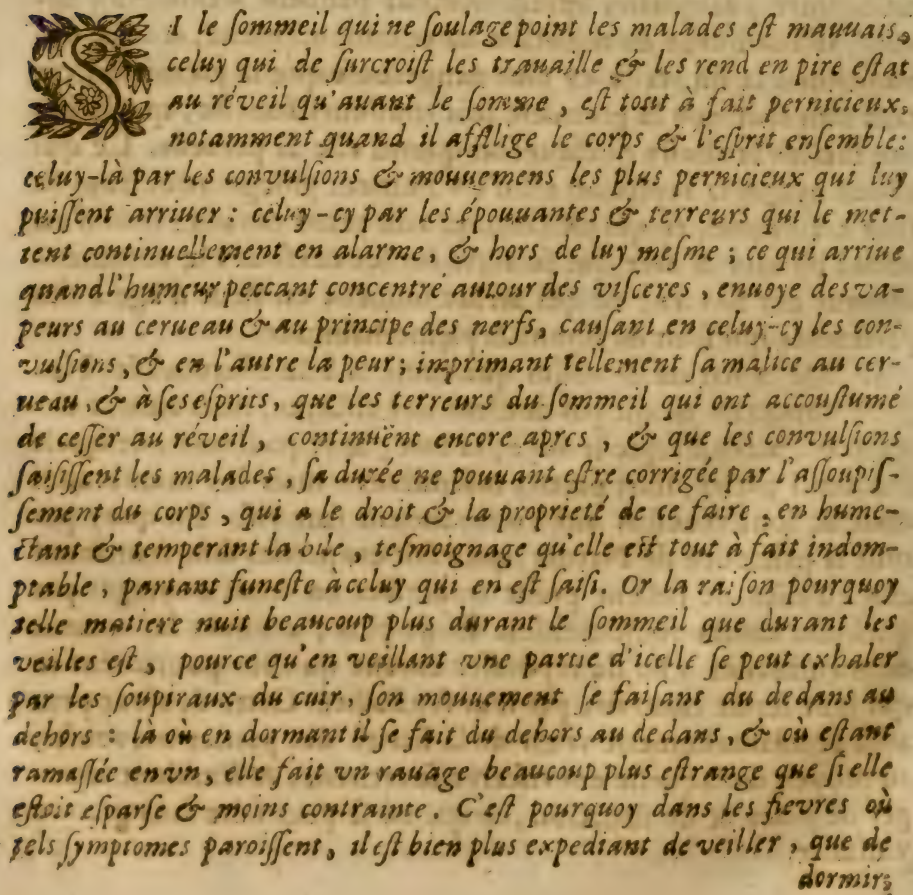 SI le ſommeil qui ne ſoulage point les malades eſt mauuais,
celuy qui de ſurcroiſt les trauaille & les rend en pire eſtat
au réveil qu'auant le ſomme, eſt tout à fait pernicieux,
notamment quand il affllige le corps & l'eſprit enſemble:
celuy-là par les convulſions & mouuemens les plus pernicieux qui luy
puiſſent arriuer : celuy-cy par les épouuantes & terreurs qui le met-
tent continuellement en alarme, & hors de luy meſme ; ce qui arriue
quand l'humeur peccant concentré autour des viſceres, enuoye des va-
peurs au cerueau & au principe des nerfs, cauſant en celuy-cy les con-
vulſions, & en l'autre la peur; imprimant tellement ſa malice au cer-
ueau, & à ſes eſprits, que les terreurs du ſommeil qui ont accouſtumé
de ceſſer au réveil, continuënt encore apres, & que les convulſions
ſaiſiſſent les malades, ſa durée ne pouuant eſtre corrigée par l'aſſoupiſ-
ſement du corps, qui a le droit & la proprieté de ce faire, en hume-
ctant & temperant la bile, teſmoignage qu'elle eſt tout à fait indom-
ptable, partant funeſte à celuy qui en eſt ſaiſi. Or la raiſon pourquoy
telle matiere nuit beaucoup plus durant le ſommeil que durant les
veilles eſt, pource qu'en veillant vne partie d'icelle ſe peut exhaler
par les ſoupiraux du cuir, ſon mouuement ſe faiſant du dedans au
dehors : là où en dormant il ſe fait du dehors au dedans, & où eſtant
ramaſſée en vn, elle fait vn rauage beaucoup plus eſtrange que ſi elle
eſtoit eſparſe & moins contrainte. C'eſt pourquoy dans les fievres où
tels ſymptomes paroiſſent, il eſt bien plus expediant de veiller, que de
dormir;